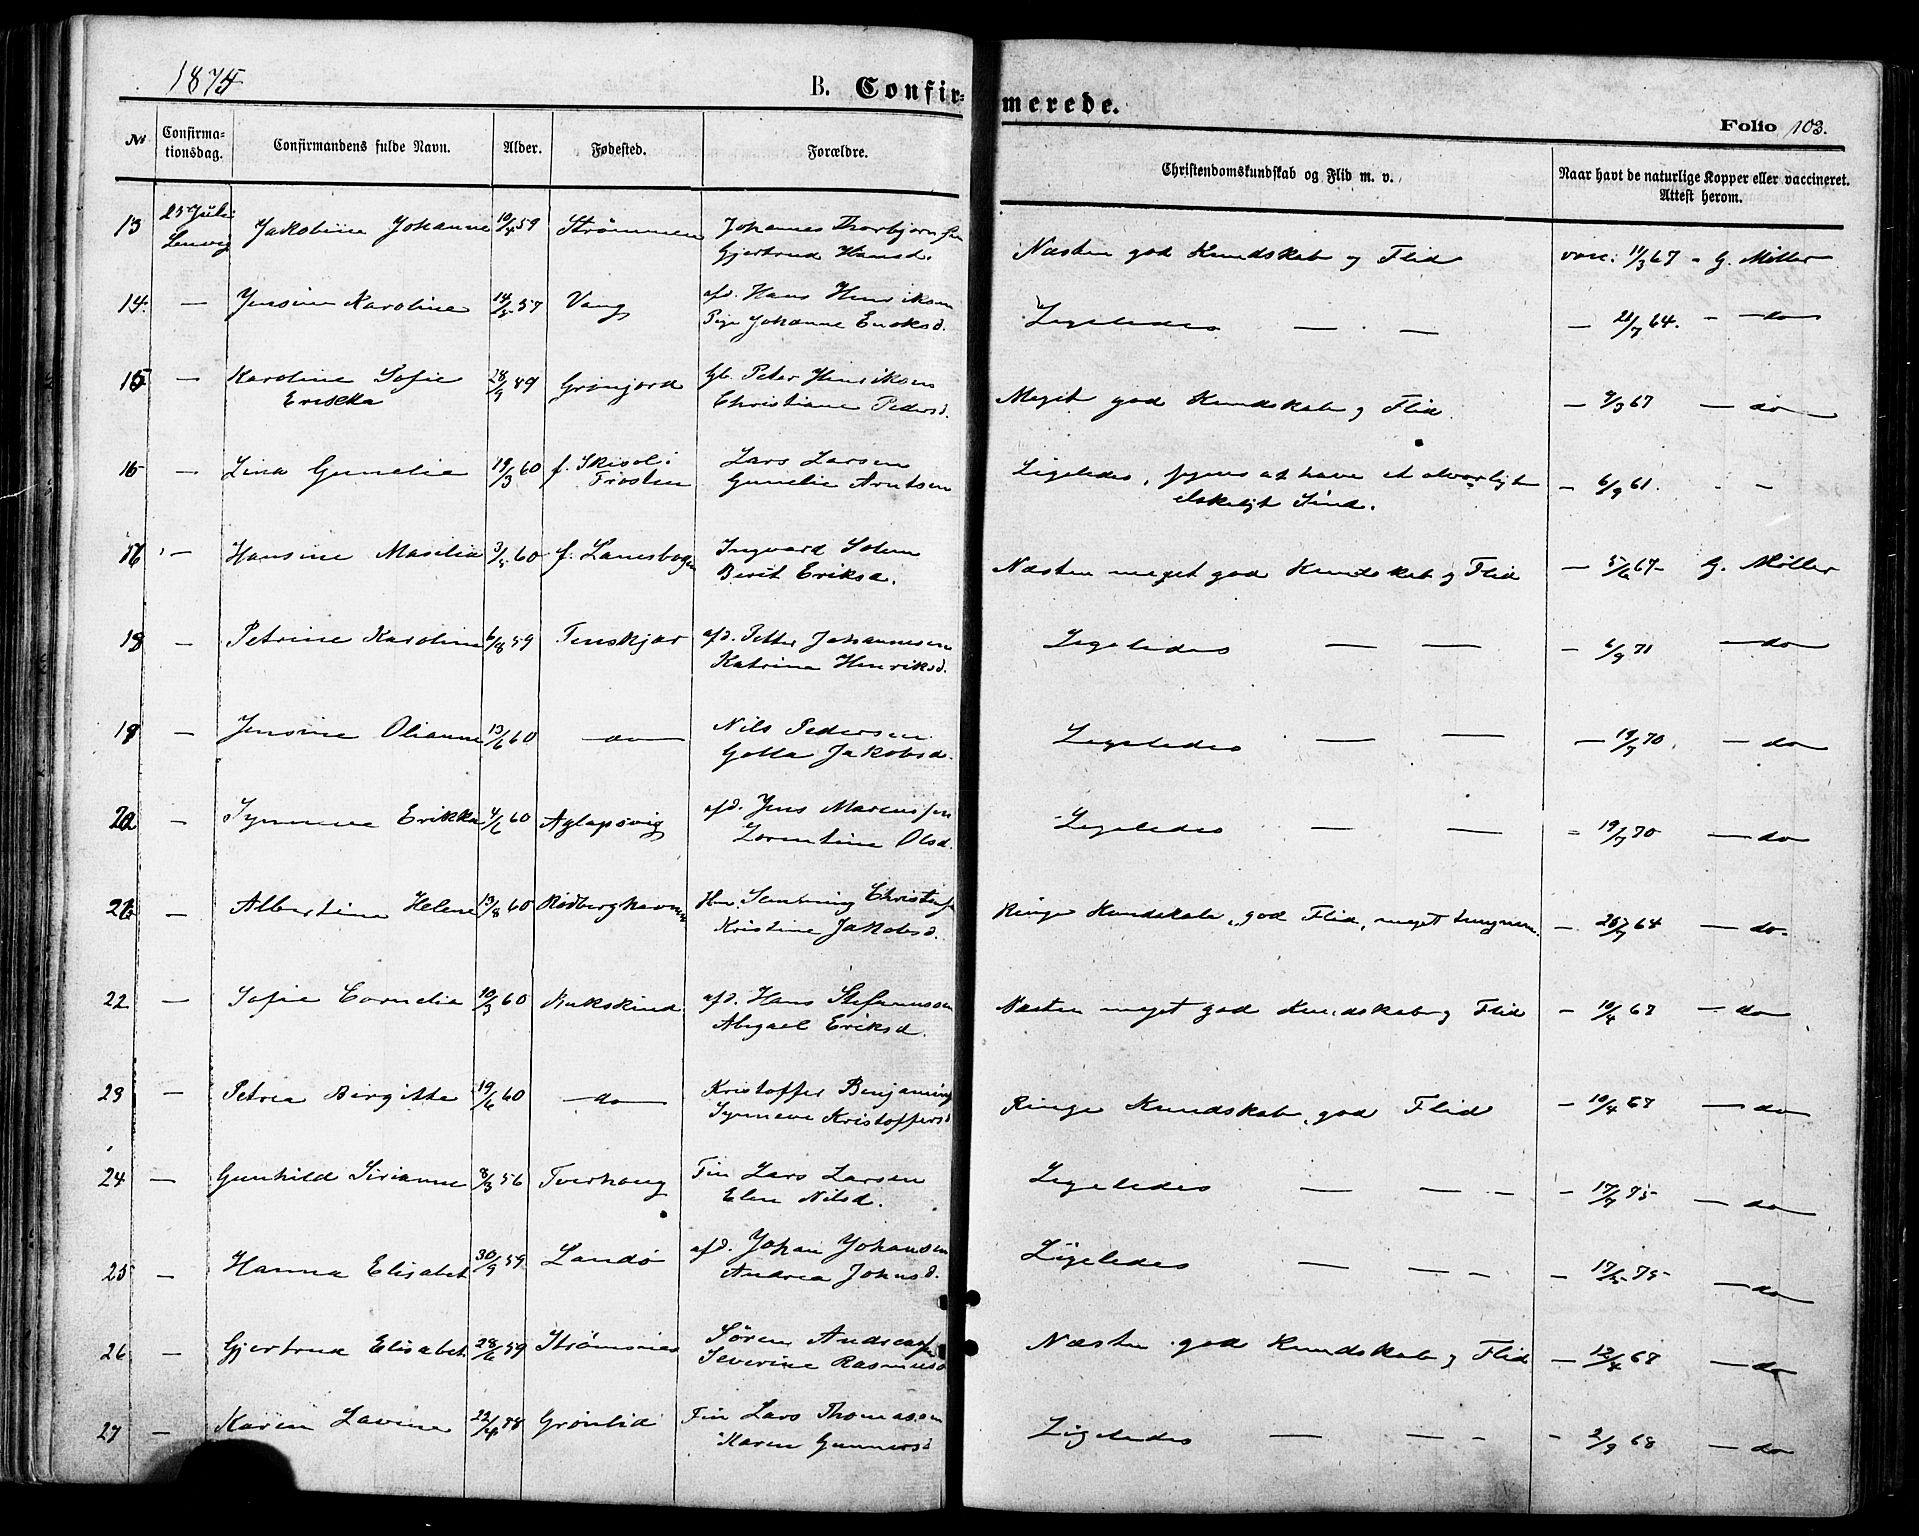 1875
B. Confirmerede.
Folio 103.
No
Confirmationsdag.
Confirmandens fulde Navn.
Alder.
Fødested.
Forældre.
Christendomskundskab og Flid m. v.
Naar havt de naturlige Kopper eller vaccineret.
Attest herom.
13 25 Juli Lenvig Jakobine Johanne 10/4 59 Strømmen Johannes Thorbjørnsen Næsten god Kundskab og Flid vac. 11/3 67 - G. Møller
Gjertrud Hansd.
14. — Jensine Karoline 14/5 57 Vang afd. Hans Henriksen Ligeledes — — — 26/7 64. - do
Pige Johanne Enoksd.
15 — Karoline Sofie 28/9 59 Grønjord Gb. Peter Henriksen Meget god Kundskab og Flid. — 9/3 67 — do
Erikka Christiane Pedersd.
16 — Lina Gunelia 19/3 60 f. Lars Larsen Ligeledes, synes at have et alvorligt — 6/9 61. - -
Trosten Gunelia Arntsen elskeligt Sind.
— Hansine Masilia 3/5 60 f. Lanesbogen Ingvard Solem Næsten meget god Kundskab og Flid — 5/6 67 - G. Møller
Berit Eriksd.
18 — Petrine Karoline 6/8 59 Tenskjær afd. Petter Johannesen Ligeledes — — — 6/9 71 — do
Katrina Henriksd.
19 — Jensine Olianne 13/6 60 — do — Nils Pedersen Ligeledes — — — 19/7 70. — do
Golla Jakobsd.
20 — Synneve Erikka 4/6 60 Aglapsvig afd. Jens Marcussen Ligeledes — — 19/7 70 — do
Lorentine Olsd.
— Albertine Helene 13/8 60 Rødberghavn Christensen Ringe Kundskab, god Flid, meget tungnem. — 26/7 64 — do.
Kristine Jakobsd.
22 — Sofie Cornelia 10/3 60 Bukskind afd. Hans Stefanusson Næsten meget god Kundskab og Flid — 10/4 67 — do
Abigael Eriksd.
23 — Petrea Birgitte 19/6 60 — do — Kristoffer Benjamins Ringe Kundskab, god Flid — 10/4 67 — do
Synneve Kristoffersd
24 — Gunhild Sirianne 8/3 56 Tverhaug Fin Lars Larsen Ligeledes — — — — 17/7 75 — do
Elen Nilsd.
25 — Hanna Elisabet 30/9 59 Landø afd. Johan Johansen Ligeledes — — — — 17/5 75 — do
Andrea Johnsd.
26 — Gjertrud Elisabet 28/6 59 Strømsnes Søren Andreassen Næsten god Kundskab og Flid — 12/4 67 — do
Severine Rasmusd
27 — Karen Lavine 22/4 58 Grønlid Fin Lars Thomassen Ligeledes — — — — 2/9 68 — do
Karen Gunnersd